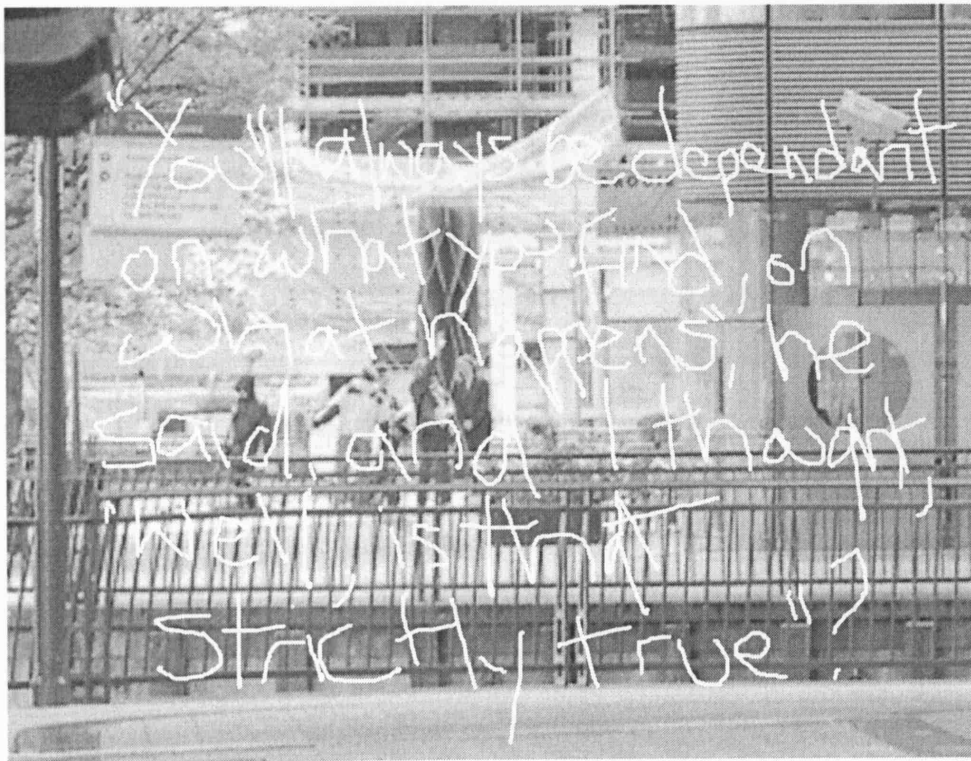 "You'll always be dependant
on what you find, on
what happens", he
said, and I thought,
"Well, is that
strictly true"?